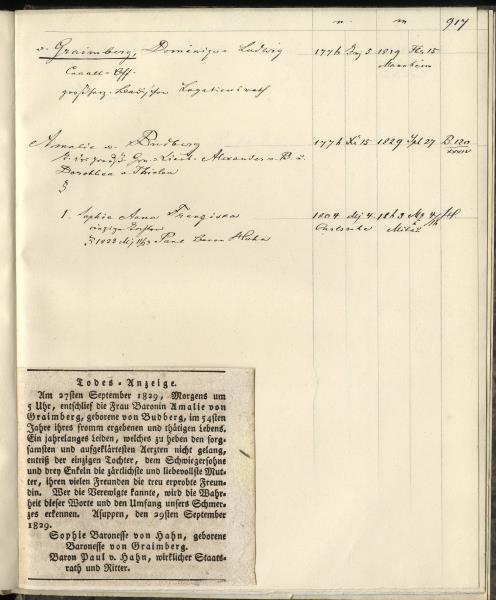 n. m 917
v. Graimberg, Dominique Ludwig 1776 5 1819 15
Mannheim
Cavall. Off.
großherz. Badischer Legationsrath
Amalie v. Budberg 1776 15 1829 27 B. 120
Alexander v. B. u.
Dorothea v.
1. Sophie Anna Franziska 1804 4. 1863
einzige Tochter Carlsruhe Mitau
1823 Paul Baron Hahn
Todes-Anzeige.
Am 27sten September 1829, Morgens um
5 Uhr, entschlief die Frau Baronin Amalie von
Graimberg, geborene von Budberg, im 54sten
Jahre ihres fromm ergebenen und thätigen Lebens.
Ein jahrelanges Leiden, welches zu heben den sorg-
samsten und aufgeklärtesten Aerzten nicht gelang,
entriß der einzigen Tochter, dem Schwiegersohne
und drey Enkeln die zärtlichste und liebevollste Mut-
ter, ihren vielen Freunden die treu erprobte Freun-
din. Wer die Verewigte kannte, wird die Wahr-
heit dieser Worte und den Umfang unsers Schmer-
zes erkennen. Asuppen, den 29sten September
1829.
Sophie Baronesse von Hahn, geborene
Baronesse von Graimberg.
Baron Paul v. Hahn, wirklicher Staats-
rath und Ritter.